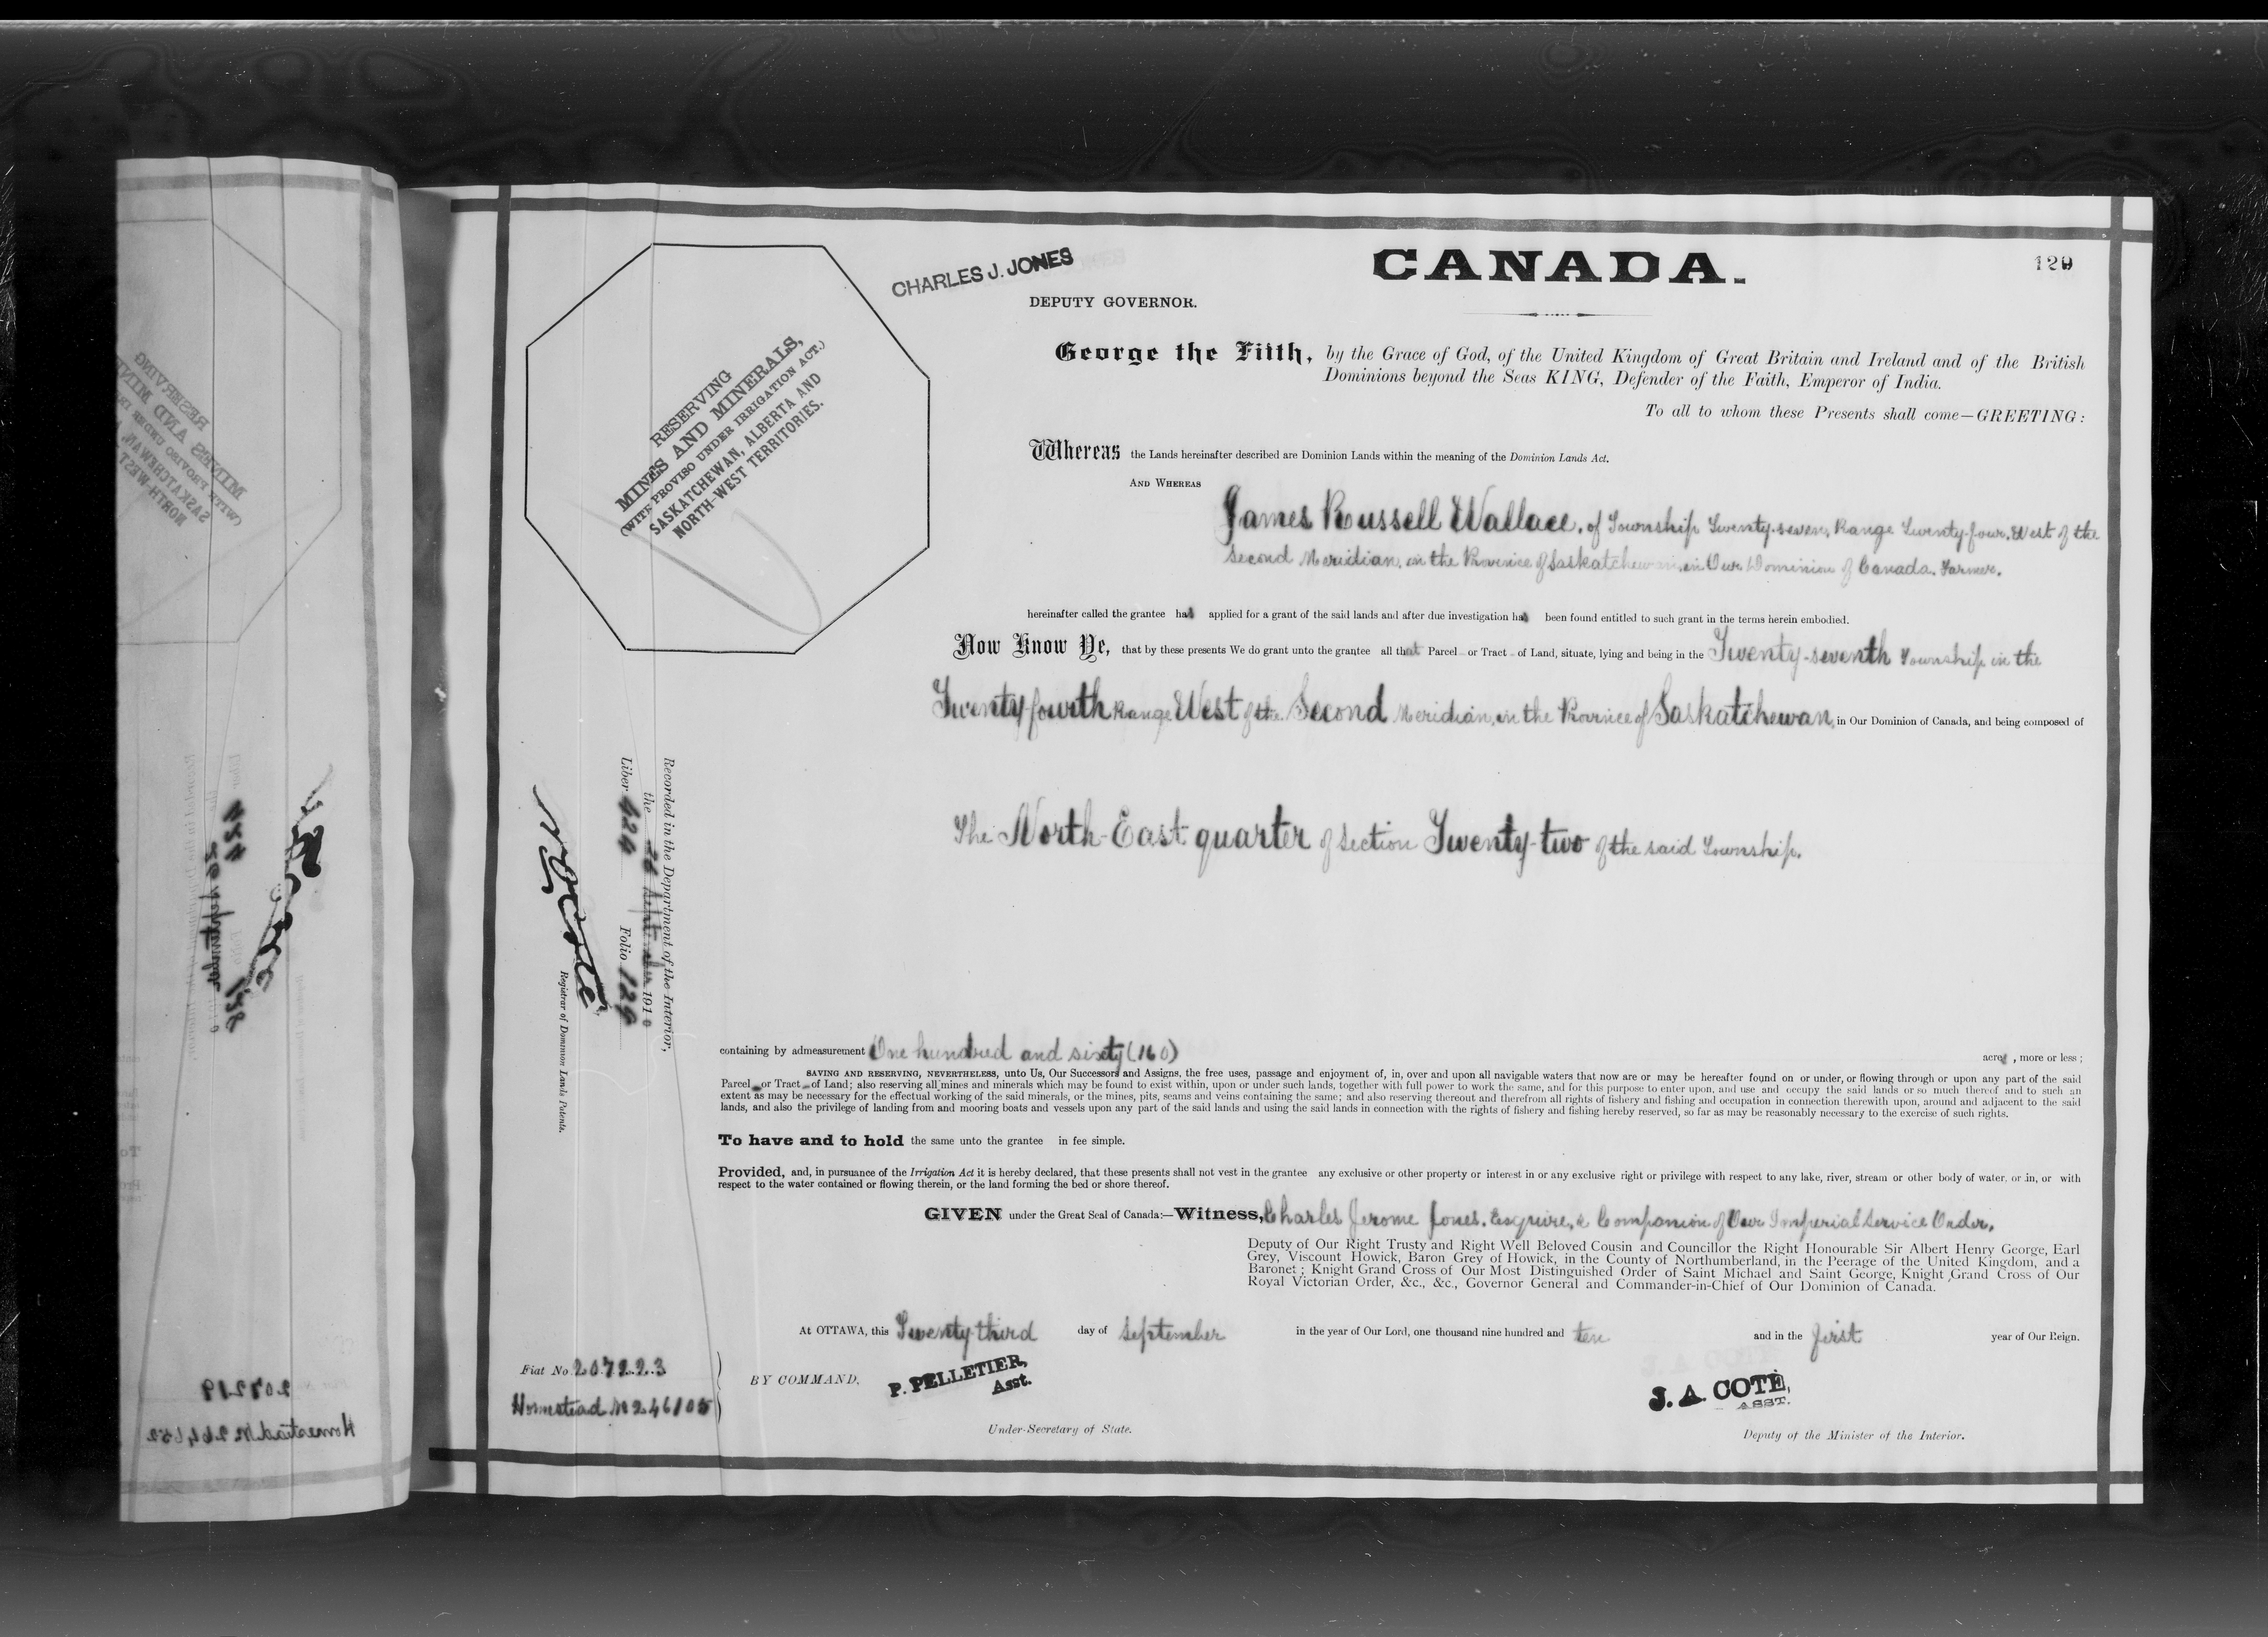 CANADA.
129
CHARLES J. JONES
DEPUTY GOVERNOR.
RESERVING
MINES AND MINERALS,
(WITH PROVISO UNDER IRRIGATION ACT.)
SASKATCHEWAN, ALBERTA AND
NORTH-WEST TERRITORIES.
George the Fifth, by the Grace of God, of the United Kingdom of Great Britain and Ireland and of the British
Dominions beyond the Seas KING, Defender of the Faith, Emperor of India.
To all to whom these Presents shall come—GREETING:
Whereas the Lands hereinafter described are Dominion Lands within the meaning of the Dominion Lands Act.
AND WHEREAS
James Russell Wallace, of Township Twenty-seven, Range Twenty-four, West of the
Second Meridian, in the Province of Saskatchewan, in Our Dominion of Canada. Farmer.
hereinafter called the grantee has applied for a grant of the said lands and after due investigation has been found entitled to such grant in the terms herein embodied.
Now Know Ye, that by these presents We do grant unto the grantee all that Parcel or Tract of Land, situate, lying and being in the Twenty-seventh Township in the
Twenty fourth Range West of the Second Meridian, in the Province of Saskatchewan, in Our Dominion of Canada, and being composed of
The North-East quarter of Section Twenty-two of the said Township.
Recorded in the Department of the Interior,
the 26 September 1910
Liber 424 Folio 129
N O Coté
Registrar of Dominion Lands Patents.
containing by admeasurement One hundred and sixty (160) acres, more or less;
SAVING AND RESERVING, NEVERTHELESS, unto Us, Our Successors and Assigns, the free uses, passage and enjoyment of, in, over and upon all navigable waters that now are or may be hereafter found on or under, or flowing through or upon any part of the said
Parcel or Tract of Land; also reserving all mines and minerals which may be found to exist within, upon or under such lands, together with full power to work the same, and for this purpose to enter upon, and use and occupy the said lands or so much thereof and to such an
extent as may be necessary for the effectual working of the said minerals, or the mines, pits, seams and veins containing the same; and also reserving thereout and therefrom all rights of fishery and fishing and occupation in connection therewith upon, around and adjacent to the said
lands, and also the privilege of landing from and mooring boats and vessels upon any part of the said lands and using the said lands in connection with the rights of fishery and fishing hereby reserved, so far as may be reasonably necessary to the exercise of such rights.
To have and to hold the same unto the grantee in fee simple.
Provided, and, in pursuance of the Irrigation Act it is hereby declared, that these presents shall not vest in the grantee any exclusive or other property or interest in or any exclusive right or privilege with respect to any lake, river, stream or other body of water, or in, or with
respect to the water contained or flowing therein, or the land forming the bed or shore thereof.
GIVEN under the Great Seal of Canada:—Witness, Charles Jerome Jones, Esquire, a Companion of Our Imperial Service Order,
Deputy of Our Right Trusty and Right Well Beloved Cousin and Councillor the Right Honourable Sir Albert Henry George, Earl
Grey, Viscount Howick, Baron Grey of Howick, in the County of Northumberland, in the Peerage of the United Kingdom, and a
Baronet; Knight Grand Cross of Our Most Distinguished Order of Saint Michael and Saint George, Knight Grand Cross of Our
Royal Victorian Order, &c., &c., Governor General and Commander-in-Chief of Our Dominion of Canada.
At OTTAWA, this Twenty-third day of September in the year of Our Lord, one thousand nine hundred and ten and in the first year of Our Reign.
Fiat No. 207223
Homestead No 246105
BY COMMAND,
P. PELLETIER,
Asst.
Under-Secretary of State.
J. A. COTÉ,
ASST.
Deputy of the Minister of the Interior.